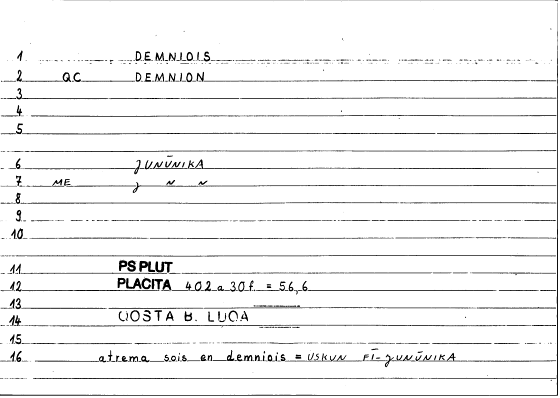 1 DEMNIOIS
2 QC DEMNION
3
4
5
6 ȷUNŪNIKA
7 ME ȷ ~ ~
8
9
10
11 PS PLUT
12 PLACITA 402 a 30f. = 56,6
13
14 QOSTA B. LUQA
15
16 atrema sois en demniois = USKUN FĪ-ȷUNŪNIKA